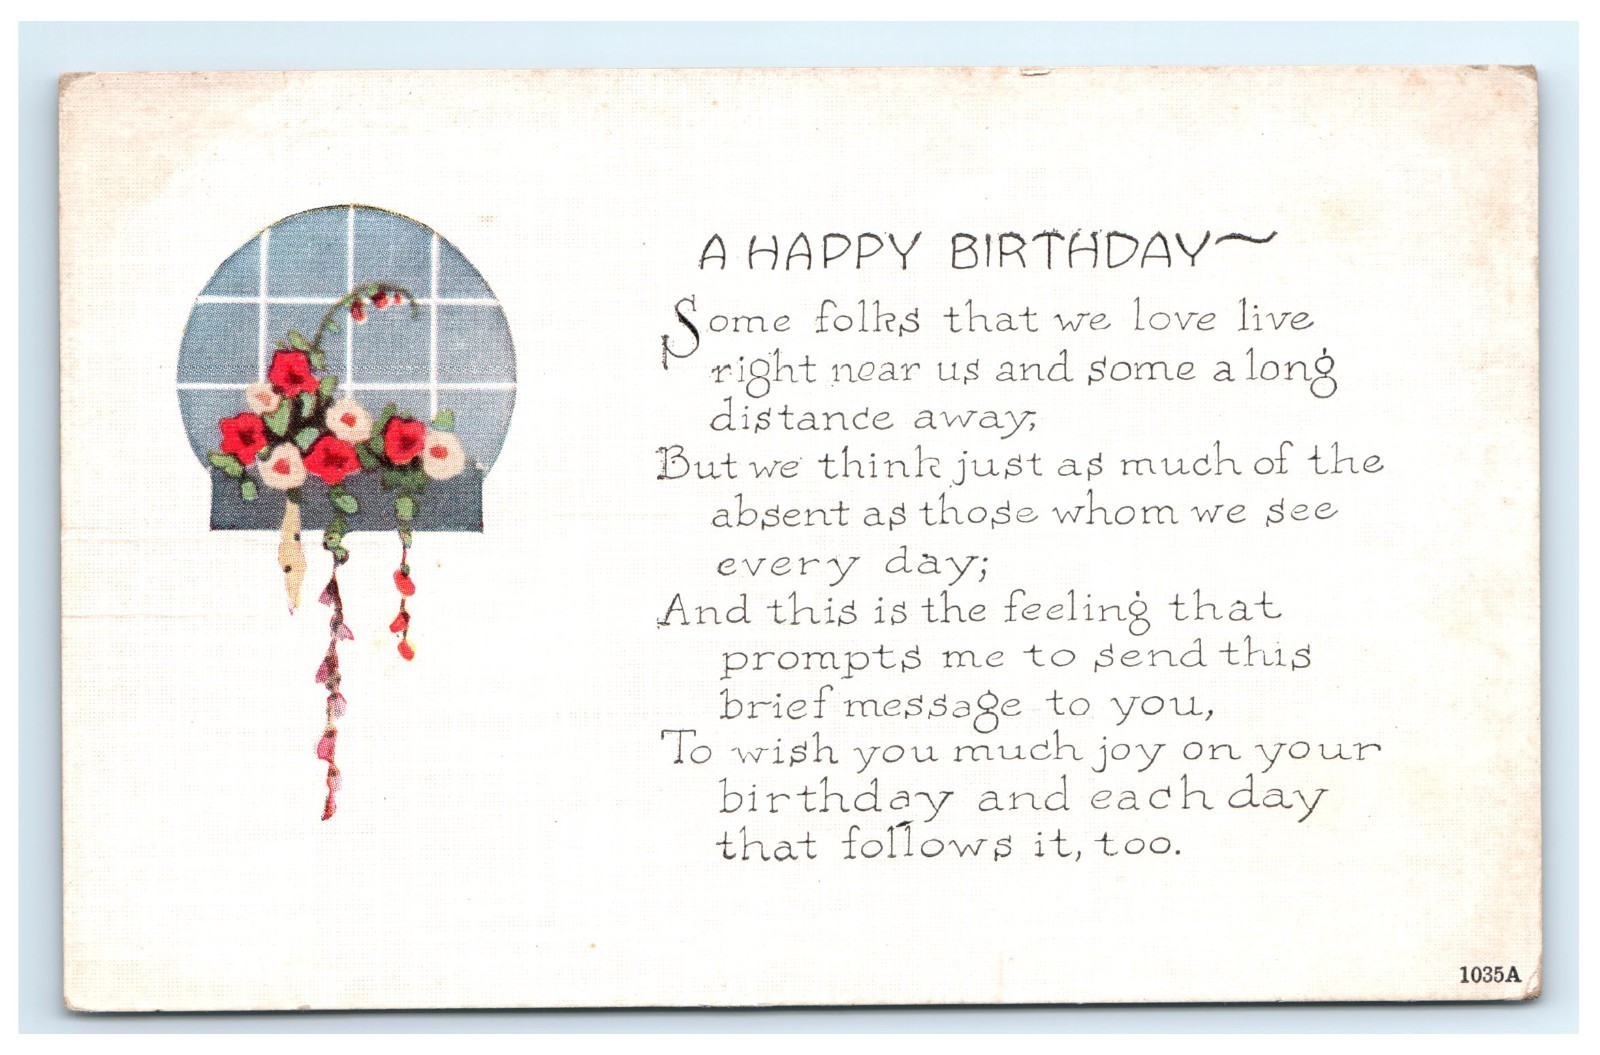 A HAPPY BIRTHDAY~
Some folks that we love live
right near us and some a long
distance away;
But we think just as much of the
absent as those whom we see
every day;
And this is the feeling that
prompts me to send this
brief message to you,
To wish you much joy on your
birthday and each day
that follows it, too.
1035A